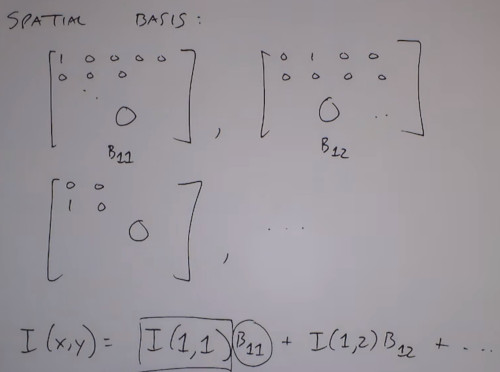 SPATIAL BASIS:
1 0 0 0 0
0 0 0
. .
0
,
B11
0 1 0 0
0 0 0 0
0 ..
B12
0 0
1 0
0
,
. . .
I(x,y) = I(1,1) B11 + I(1,2) B12 + ....